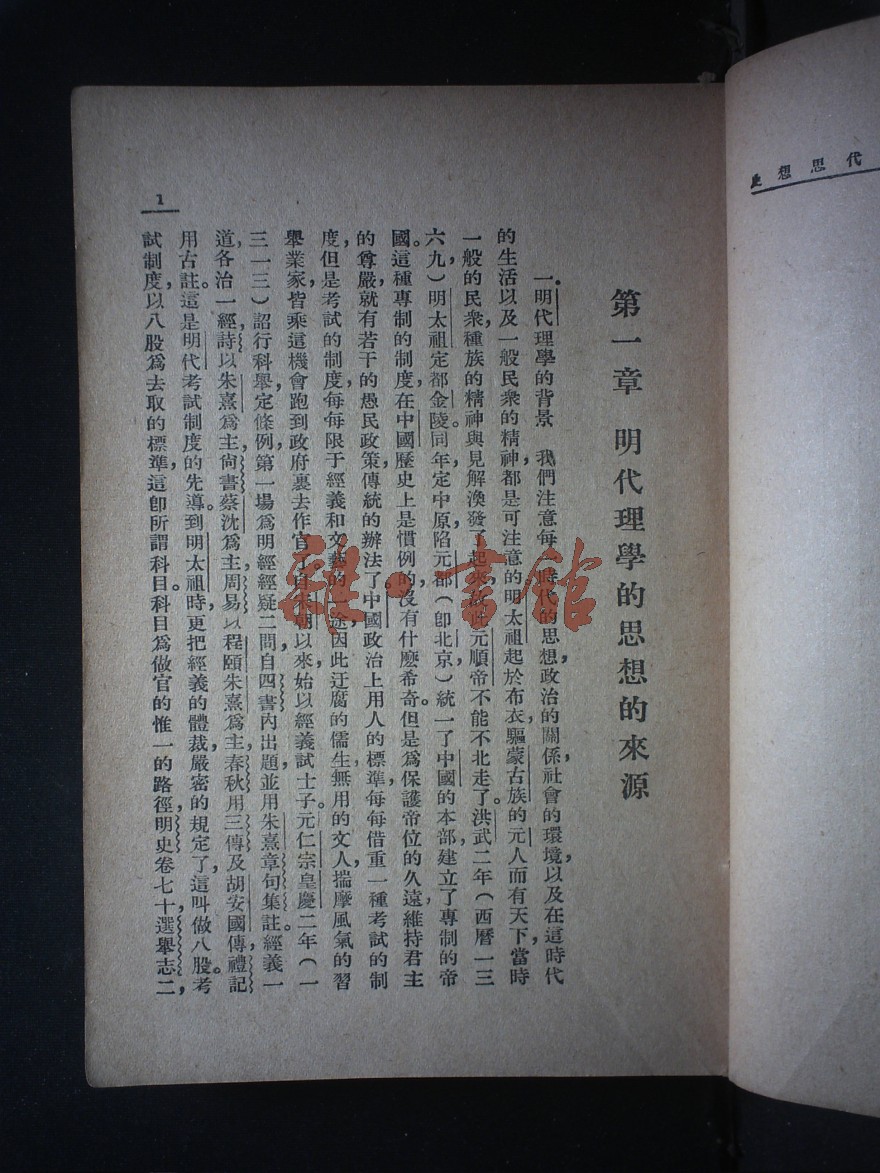 代思想史
第一章 明代理學的思想的來源
一、明代理學的背景 我們注意每一時代的思想，政治的關係，社會的環境，以及在這時代
的生活以及一般民衆的精神，都是可注意的。明太祖起於布衣，驅蒙古族的元人而有天下，當時
一般的民衆，種族的精神與見解渙發了起來，故此元順帝不能不北走了。洪武二年（西曆一三
六九）明太祖定都金陵。同年，定中原，陷元都（卽北京，）統一了中國的本部，建立了專制的帝
國。這種專制的制度，在中國歷史上是慣例的，沒有什麽希奇。但是爲保護帝位的久遠，維持君主
的尊嚴，就有若干的愚民政策，傳統的辦法了。中國政治上用人的標準，每每借重一種考試的制
度，但是考試的制度，每每限于經義和文藝的一途，因此迂腐的儒生，無用的文人，揣摩風氣的習
舉業家，皆乘這機會跑到政府裏去作官了。自宋朝以來，始以經義試士子。元仁宗皇慶二年（一
三一三）詔行科舉，定條例，第一場爲明經經疑二問，自四書內出題，並用朱熹章句集註。經義一
道，各治一經，詩以朱熹爲主，尚書蔡沈爲主，周易以程頤朱熹爲主，春秋用三傳及胡安國傳，禮記
用古註。這是明代考試制度的先導。到明太祖時，更把經義的體裁，嚴密的規定了，這叫做八股。考
試制度，以八股爲去取的標準，這卽所謂科目。科目爲做官的惟一的路徑，明史卷七十選舉志二，
1
雜·書館